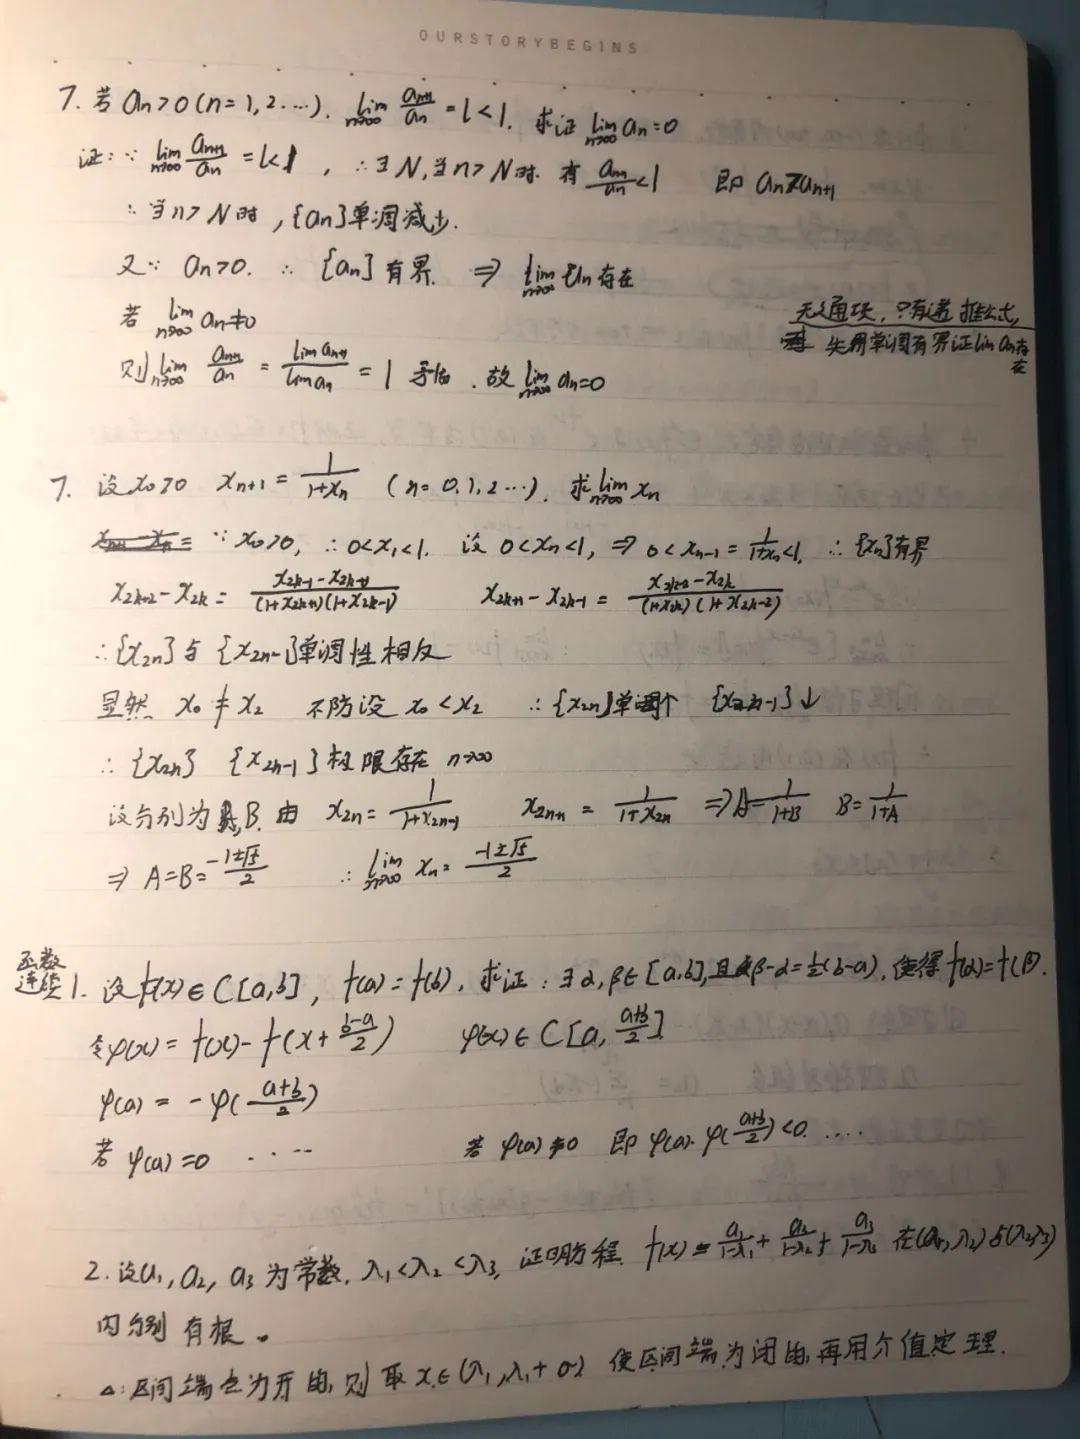 OURSTORYBEGINS
7. 若 an>0 (n=1,2…). lim n→∞ an+1/an = l<1. 求证 lim n→∞ an=0
证: ∵ lim n→∞ an+1/an = l<1, ∴ ∃ N, 当n>N时. 有 an+1/an<1 即 an>an+1
∴ 当n>N时, {an}单调减少.
又∵ an>0. ∴ {an}有界. ⇒ lim n→∞ an存在
若 lim n→∞ an≠0
无通项, 只有递推公式,
先用单调有界证lim an存在
则 lim n→∞ an+1/an = lim an+1/lim an = 1 矛盾. 故 lim n→∞ an=0
7. 设x0>0 xn+1 = 1/1+xn (n=0,1,2…). 求 lim n→∞ xn
∵ x0>0, ∴ 0<x1<1. 设 0<xn<1, ⇒ 0<xn-1 = 1/1+xn<1. ∴ {xn}有界
x2k+2 - x2k = x2k-1 - x2k+1/(1+x2k+1)(1+x2k-1) x2k+1 - x2k-1 = x2k-2 - x2k/(1+x2k)(1+x2k-2)
∴ {x2n}与{x2n-1}单调性相反
显然 x0 ≠ x2 不防设 x0 < x2 ∴ {x2n}单调↑ {x2n-1}↓
∴ {x2n} {x2n-1}极限存在 n→∞
设分别为A, B. 由 x2n = 1/1+x2n-1 x2n+1 = 1/1+x2n ⇒ A=1/1+B B=1/1+A
⇒ A=B= -1±√5/2 ∴ lim n→∞ xn = -1±√5/2
函数连续
1. 设f(x)∈C[a,b], f(a)=f(b), 求证: ∃ α,β∈[a,b],且β-α=½(b-a), 使得f(α)=f(β).
令φ(x) = f(x) - f(x+b-a/2) φ(x)∈C[a, a+b/2]
φ(a) = -φ(a+b/2)
若 φ(a)=0 …… 若 φ(a)≠0 即 φ(a)·φ(a+b/2)<0. ……
2. 设a1, a2, a3 为常数, λ1<λ2<λ3, 证明方程 f(x) = a1/1-λ1 + a2/1-λ2 + a3/1-λ3 在(λ1,λ2)与(λ2,λ3)
内分别有根.
△: 区间端点为开的, 则取 x∈(λ1,λ1+ 使区间端为闭的,再用介值定理.